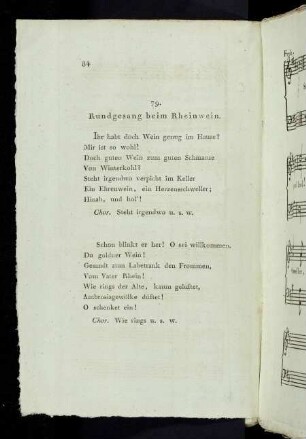 84
79.
Rundgesang beim Rheinwein.
Ihr habt doch Wein genug im Hause?
Mir ist so wohl!
Doch guten Wein zum guten Schmause
Von Winterkohl?
Steht irgendwo verpicht im Keller
Ein Ehrenwein, ein Herzenschweller;
Hinab, und hol'!
Chor. Steht irgendwo u. s. w.
Schon blinkt er her! O sei willkommen,
Du goldner Wein!
Gesandt zum Labetrank den Frommen,
Vom Vater Rhein!
Wie rings der Alte, kaum gelüftet,
Ambrosiagewölke düftet!
O schenket ein!
Chor. Wie rings u. s. w.